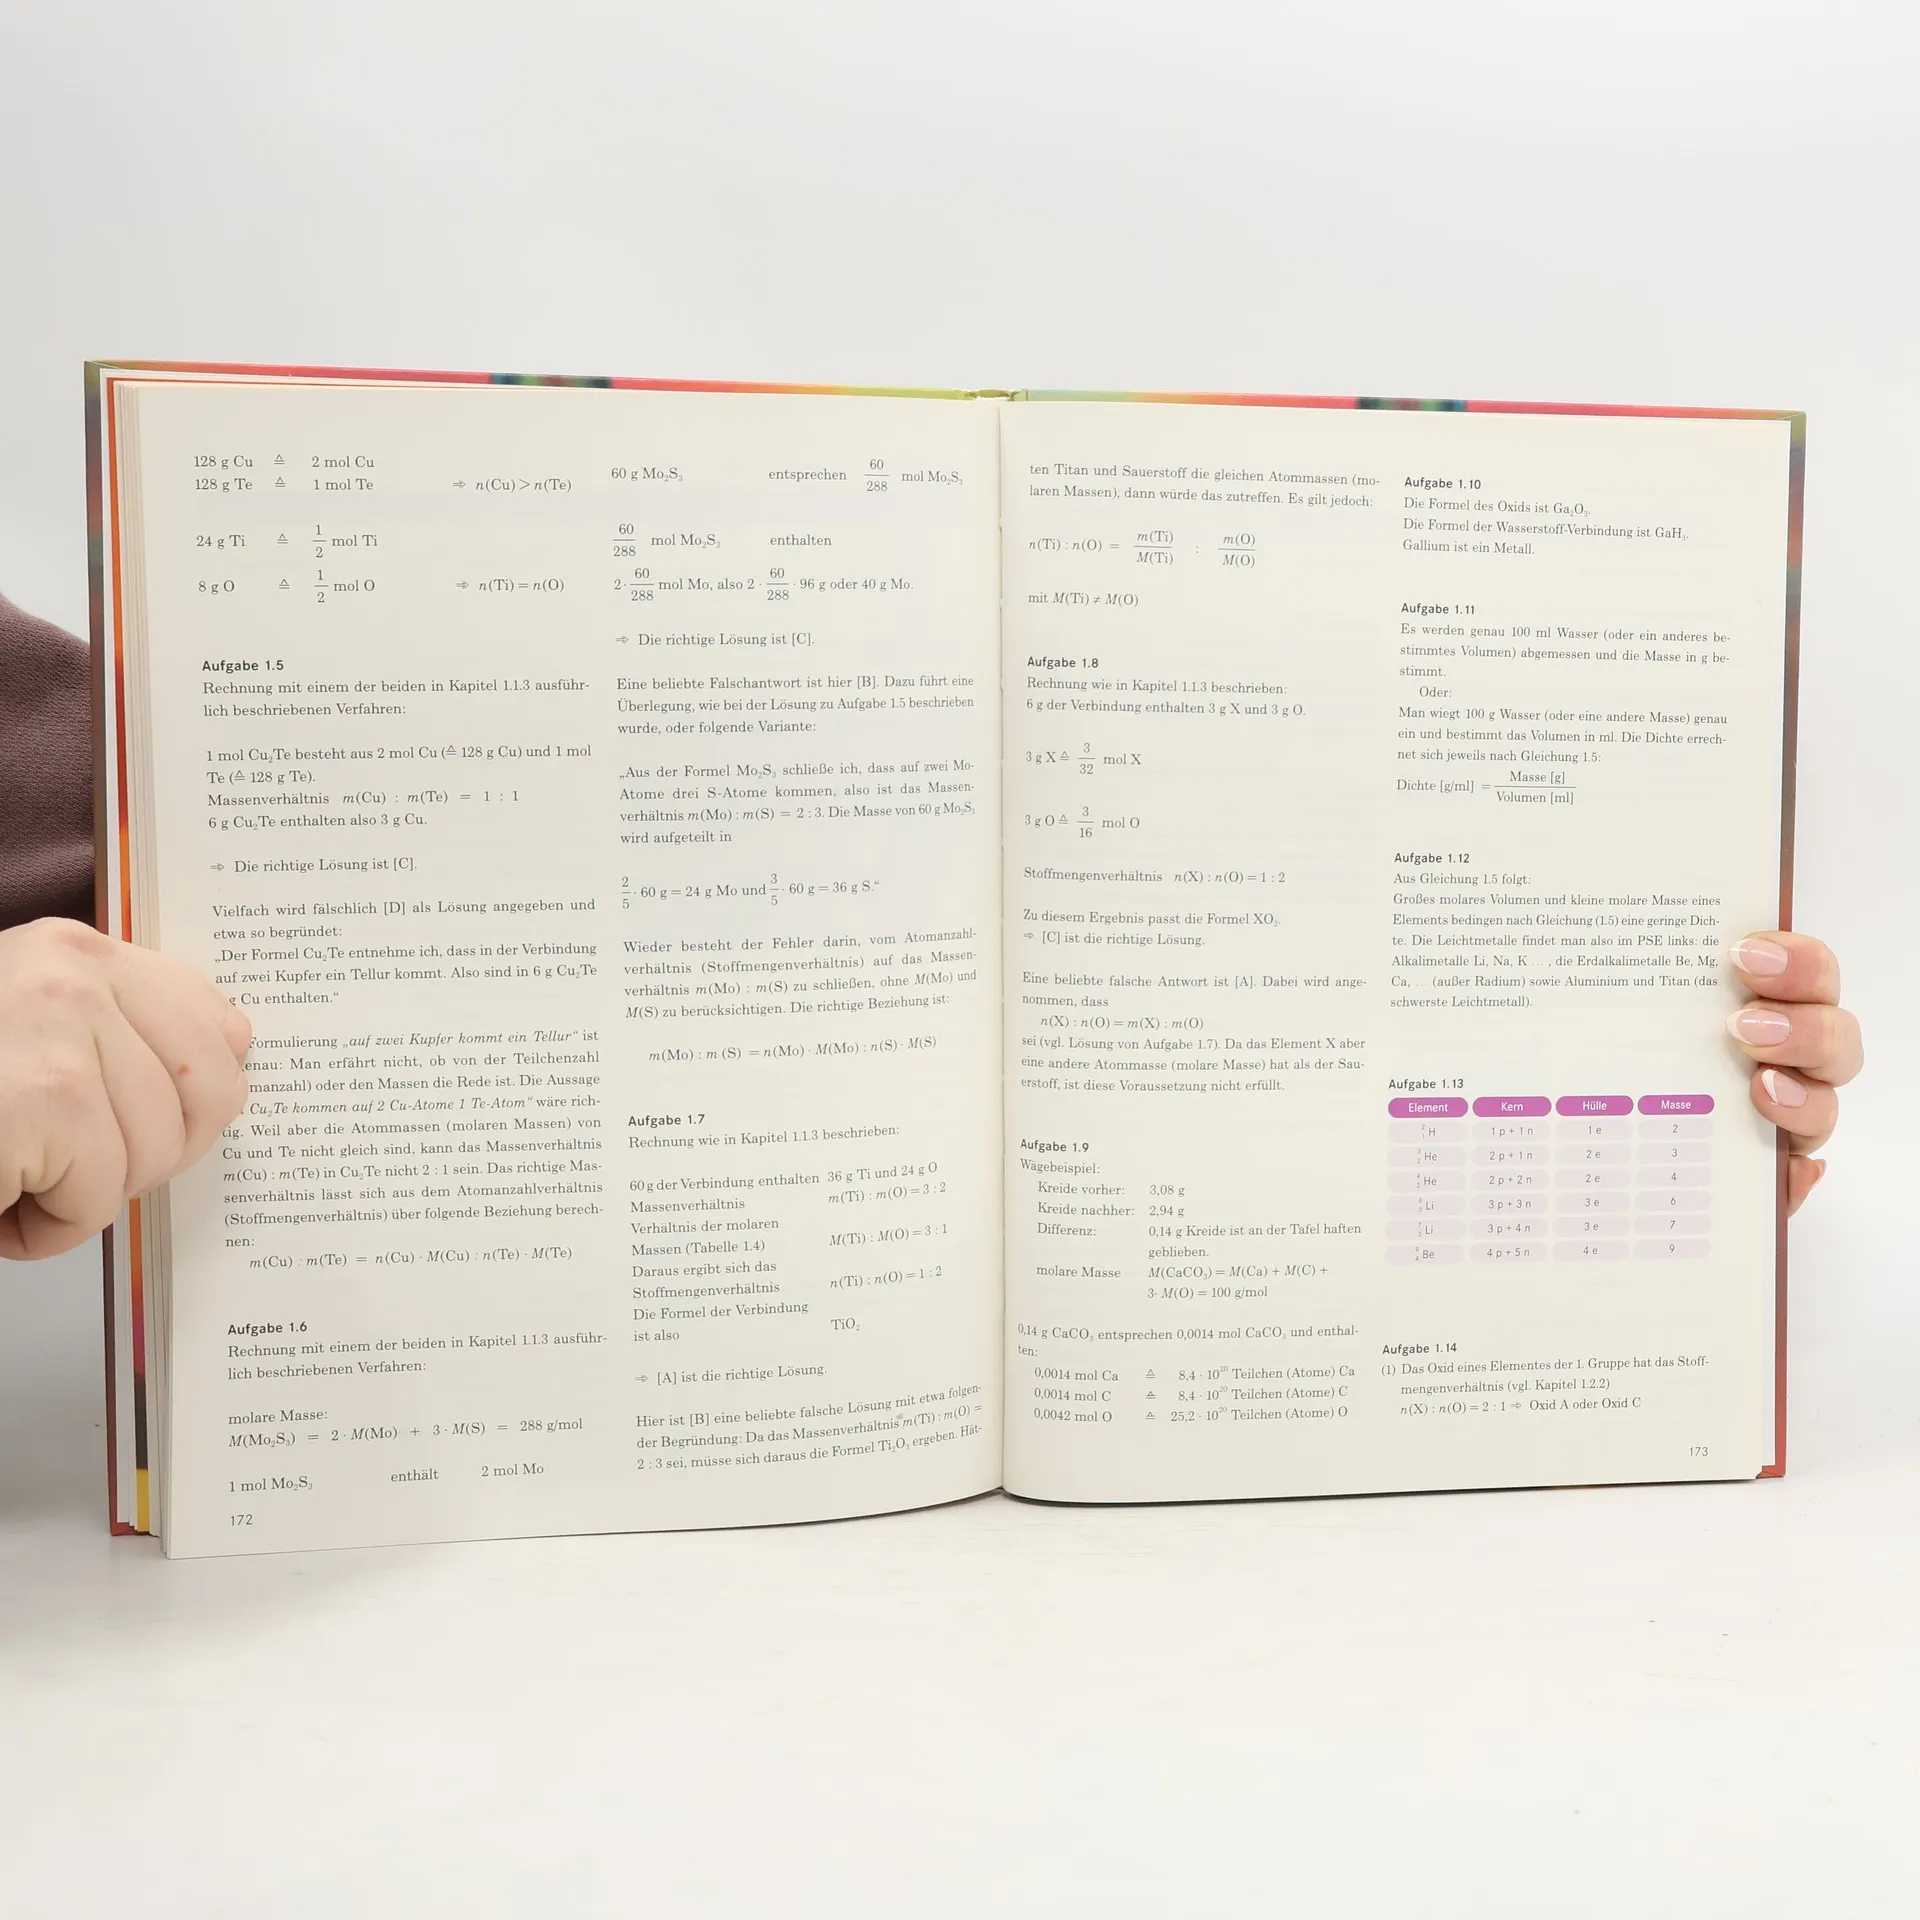 128 g Cu ≙ 2 mol Cu
128 g Te ≙ 1 mol Te ⇒ n(Cu) > n(Te)
24 g Ti ≙ 1/2 mol Ti
8 g O ≙ 1/2 mol O ⇒ n(Ti) = n(O)
Aufgabe 1.5
Rechnung mit einem der beiden in Kapitel 1.1.3 ausführ-
lich beschriebenen Verfahren:
1 mol Cu₂Te besteht aus 2 mol Cu (≙ 128 g Cu) und 1 mol
Te (≙ 128 g Te).
Massenverhältnis m(Cu) : m(Te) = 1 : 1
6 g Cu₂Te enthalten also 3 g Cu.
⇒ Die richtige Lösung ist [C].
Vielfach wird fälschlich [D] als Lösung angegeben und
etwa so begründet:
„Der Formel Cu₂Te entnehme ich, dass in der Verbindung
auf zwei Kupfer ein Tellur kommt. Also sind in 6 g Cu₂Te
g Cu enthalten.“
Formulierung „auf zwei Kupfer kommt ein Tellur“ ist
enau: Man erfährt nicht, ob von der Teilchenzahl
manzahl) oder den Massen die Rede ist. Die Aussage
Cu₂Te kommen auf 2 Cu-Atome 1 Te-Atom“ wäre rich-
tig. Weil aber die Atommassen (molaren Massen) von
Cu und Te nicht gleich sind, kann das Massenverhältnis
m(Cu) : m(Te) in Cu₂Te nicht 2 : 1 sein. Das richtige Mas-
senverhältnis lässt sich aus dem Atomanzahlverhältnis
(Stoffmengenverhältnis) über folgende Beziehung berech-
nen:
m(Cu) : m(Te) = n(Cu) · M(Cu) : n(Te) · M(Te)
Aufgabe 1.6
Rechnung mit einem der beiden in Kapitel 1.1.3 ausführ-
lich beschriebenen Verfahren:
molare Masse:
M(Mo₂S₃) = 2 · M(Mo) + 3 · M(S) = 288 g/mol
1 mol Mo₂S₃ enthält 2 mol Mo
172
60 g Mo₂S₃ entsprechen 60/288 mol Mo₂S₃
60/288 mol Mo₂S₃ enthalten
2 · 60/288 mol Mo, also 2 · 60/288 · 96 g oder 40 g Mo.
⇒ Die richtige Lösung ist [C].
Eine beliebte Falschantwort ist hier [B]. Dazu führt eine
Überlegung, wie bei der Lösung zu Aufgabe 1.5 beschrieben
wurde, oder folgende Variante:
„Aus der Formel Mo₂S₃ schließe ich, dass auf zwei Mo-
Atome drei S-Atome kommen, also ist das Massen-
verhältnis m(Mo) : m(S) = 2 : 3. Die Masse von 60 g Mo₂S₃
wird aufgeteilt in
2/5 · 60 g = 24 g Mo und 3/5 · 60 g = 36 g S.“
Wieder besteht der Fehler darin, vom Atomanzahl-
verhältnis (Stoffmengenverhältnis) auf das Massen-
verhältnis m(Mo) : m(S) zu schließen, ohne M(Mo) und
M(S) zu berücksichtigen. Die richtige Beziehung ist:
m(Mo) : m (S) = n(Mo) · M(Mo) : n(S) · M(S)
Aufgabe 1.7
Rechnung wie in Kapitel 1.1.3 beschrieben:
60 g der Verbindung enthalten 36 g Ti und 24 g O
Massenverhältnis m(Ti) : m(O) = 3 : 2
Verhältnis der molaren
Massen (Tabelle 1.4) M(Ti) : M(O) = 3 : 1
Daraus ergibt sich das
Stoffmengenverhältnis n(Ti) : n(O) = 1 : 2
Die Formel der Verbindung
ist also TiO₂
⇒ [A] ist die richtige Lösung.
Hier ist [B] eine beliebte falsche Lösung mit etwa folgen-
der Begründung: Da das Massenverhältnis m(Ti) : m(O) =
2 : 3 sei, müsse sich daraus die Formel Ti₂O₃ ergeben. Hät-
ten Titan und Sauerstoff die gleichen Atommassen (mo-
laren Massen), dann würde das zutreffen. Es gilt jedoch:
n(Ti) : n(O) = m(Ti)/M(Ti) : m(O)/M(O)
mit M(Ti) ≠ M(O)
Aufgabe 1.8
Rechnung wie in Kapitel 1.1.3 beschrieben:
6 g der Verbindung enthalten 3 g X und 3 g O.
3 g X ≙ 3/32 mol X
3 g O ≙ 3/16 mol O
Stoffmengenverhältnis n(X) : n(O) = 1 : 2
Zu diesem Ergebnis passt die Formel XO₂.
⇒ [C] ist die richtige Lösung.
Eine beliebte falsche Antwort ist [A]. Dabei wird ange-
nommen, dass
n(X) : n(O) = m(X) : m(O)
sei (vgl. Lösung von Aufgabe 1.7). Da das Element X aber
eine andere Atommasse (molare Masse) hat als der Sau-
erstoff, ist diese Voraussetzung nicht erfüllt.
Aufgabe 1.9
Wägebeispiel:
Kreide vorher: 3,08 g
Kreide nachher: 2,94 g
Differenz: 0,14 g Kreide ist an der Tafel haften
geblieben.
molare Masse M(CaCO₃) = M(Ca) + M(C) +
3· M(O) = 100 g/mol
0,14 g CaCO₃ entsprechen 0,0014 mol CaCO₃ und enthal-
ten:
0,0014 mol Ca ≙ 8,4 · 10²⁰ Teilchen (Atome) Ca
0,0014 mol C ≙ 8,4 · 10²⁰ Teilchen (Atome) C
0,0042 mol O ≙ 25,2 · 10²⁰ Teilchen (Atome) O
Aufgabe 1.10
Die Formel des Oxids ist Ga₂O₃.
Die Formel der Wasserstoff-Verbindung ist GaH₃.
Gallium ist ein Metall.
Aufgabe 1.11
Es werden genau 100 ml Wasser (oder ein anderes be-
stimmtes Volumen) abgemessen und die Masse in g be-
stimmt.
Oder:
Man wiegt 100 g Wasser (oder eine andere Masse) genau
ein und bestimmt das Volumen in ml. Die Dichte errech-
net sich jeweils nach Gleichung 1.5:
Dichte [g/ml] = Masse [g]/Volumen [ml]
Aufgabe 1.12
Aus Gleichung 1.5 folgt:
Großes molares Volumen und kleine molare Masse eines
Elements bedingen nach Gleichung (1.5) eine geringe Dich-
te. Die Leichtmetalle findet man also im PSE links: die
Alkalimetalle Li, Na, K ... , die Erdalkalimetalle Be, Mg,
Ca, ... (außer Radium) sowie Aluminium und Titan (das
schwerste Leichtmetall).
Aufgabe 1.13
Element Kern Hülle Masse
²₁H 1 p + 1 n 1 e 2
³₂He 2 p + 1 n 2 e 3
⁴₂He 2 p + 2 n 2 e 4
⁶₃Li 3 p + 3 n 3 e 6
⁷₃Li 3 p + 4 n 3 e 7
⁹₄Be 4 p + 5 n 4 e 9
Aufgabe 1.14
(1) Das Oxid eines Elementes der 1. Gruppe hat das Stoff-
mengenverhältnis (vgl. Kapitel 1.2.2)
n(X) : n(O) = 2 : 1 ⇒ Oxid A oder Oxid C
173